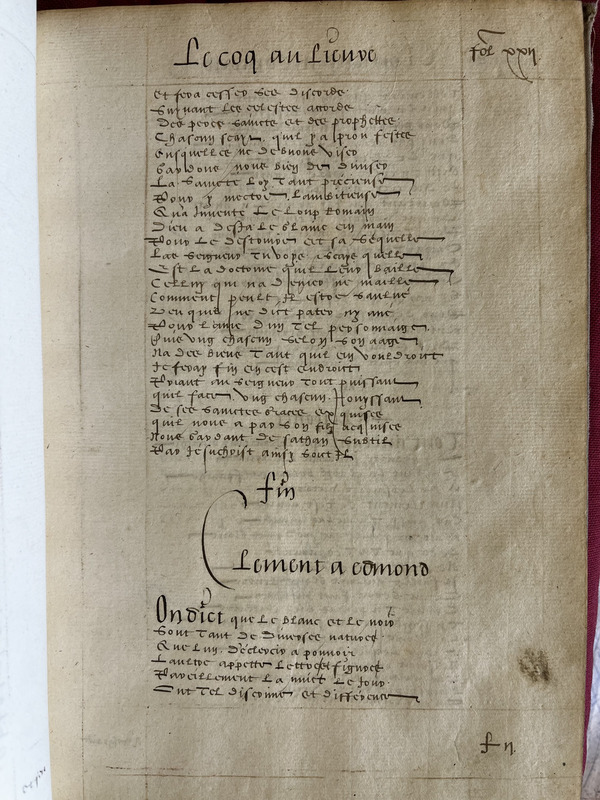 Le coq au lieuvre
fol xxii
Et fera cesser ses discorde
Suyvant les celestes accorde
Des peres saincts et des prophettes
Chascun scayt quil y a prou festes
Ensquelles ne debvons viser
La saincte loy tant précieuse
Pour y mectre lambitieuse
Qua Invente Le Loup Romain
Dieu a desja le blasme en main
Pour Le destruire et sa sequelle
Las seigneur
Est la doctrine quil leur baille
Celluy qui na denier ne maille
Comment peult Il estre saulvé
Veu que ne dict pater ny avé
Pour lame dun tel personnaige
Puis ung chascun selon son aage
Na des biens tant quil en vouldroit
Je feray fin en cest endroit
Priant au seigneur tout puissant
quil face ung chascun Jouyssant
De ses sainctes graces exquises
quil nous a par son filz acquises
Nous gardant de sathan subtil
Par Jesuchrist ainsy soit Il
fin
Clement a edmond
On dict que le blanc et le noir
Sont tant de diverses natures
Que lun a pouvoir
Laultre appette Lettres et figures
Pareillement La nuict Le Jour
Ont tel discorme et différence